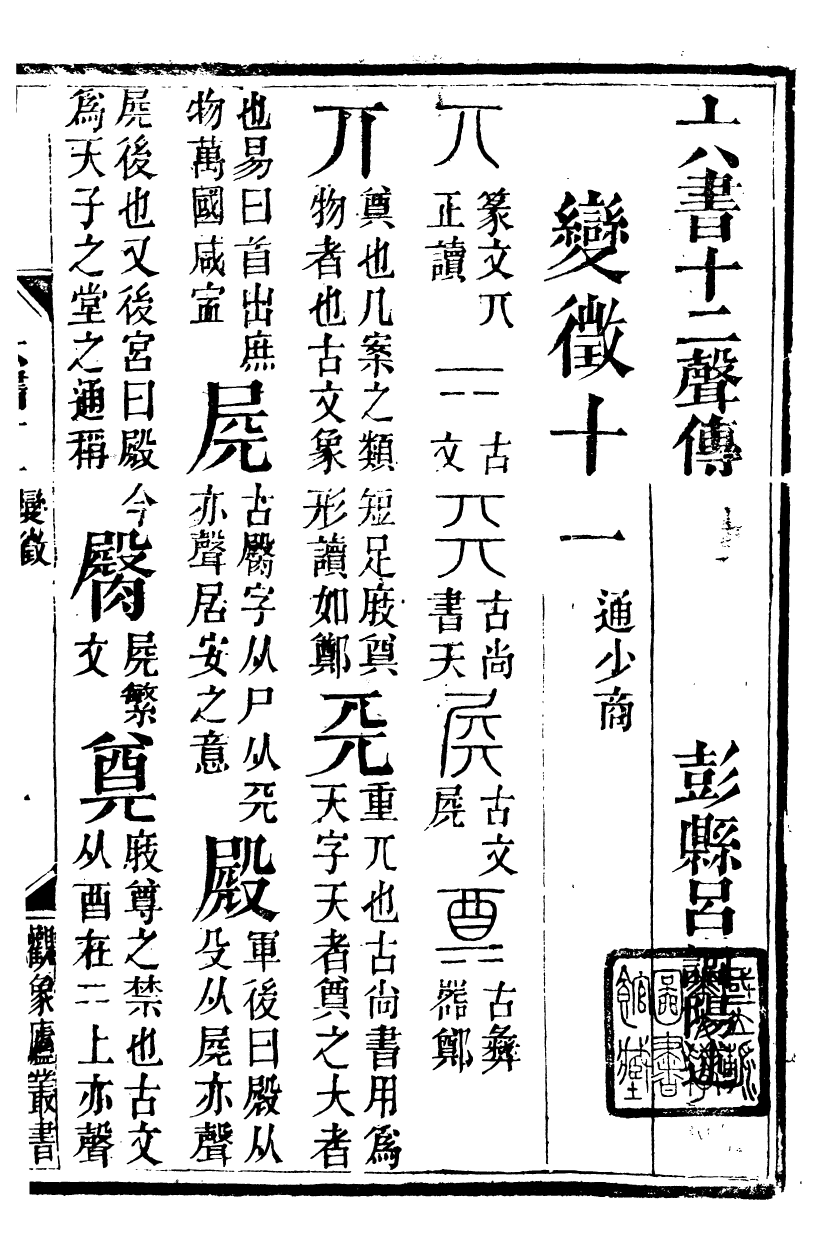 六書十二聲傳 彭縣呂調陽
變徵十一 通少商
丌 篆文丌正讀 二 古文 𠀘 古尚書天 𡱒 古文𡱒 奠 古彝器鄭
丌 奠也几案之類短足庋奠物者也古文象形讀如鄭 𠀘 重丌也古尚書用為天字天者奠之大者
也易曰首出庶物萬國咸寍 𡱒 古臋字从尸从𠀘亦聲居安之意 殿 軍後曰殿从殳从𡱒亦聲
𡱒後也又後宮曰殿今為天子之堂之通稱 臋 𡱒繁文 奠 庋尊之禁也古文从酉在二上亦聲
變徵 觀象廬叢書